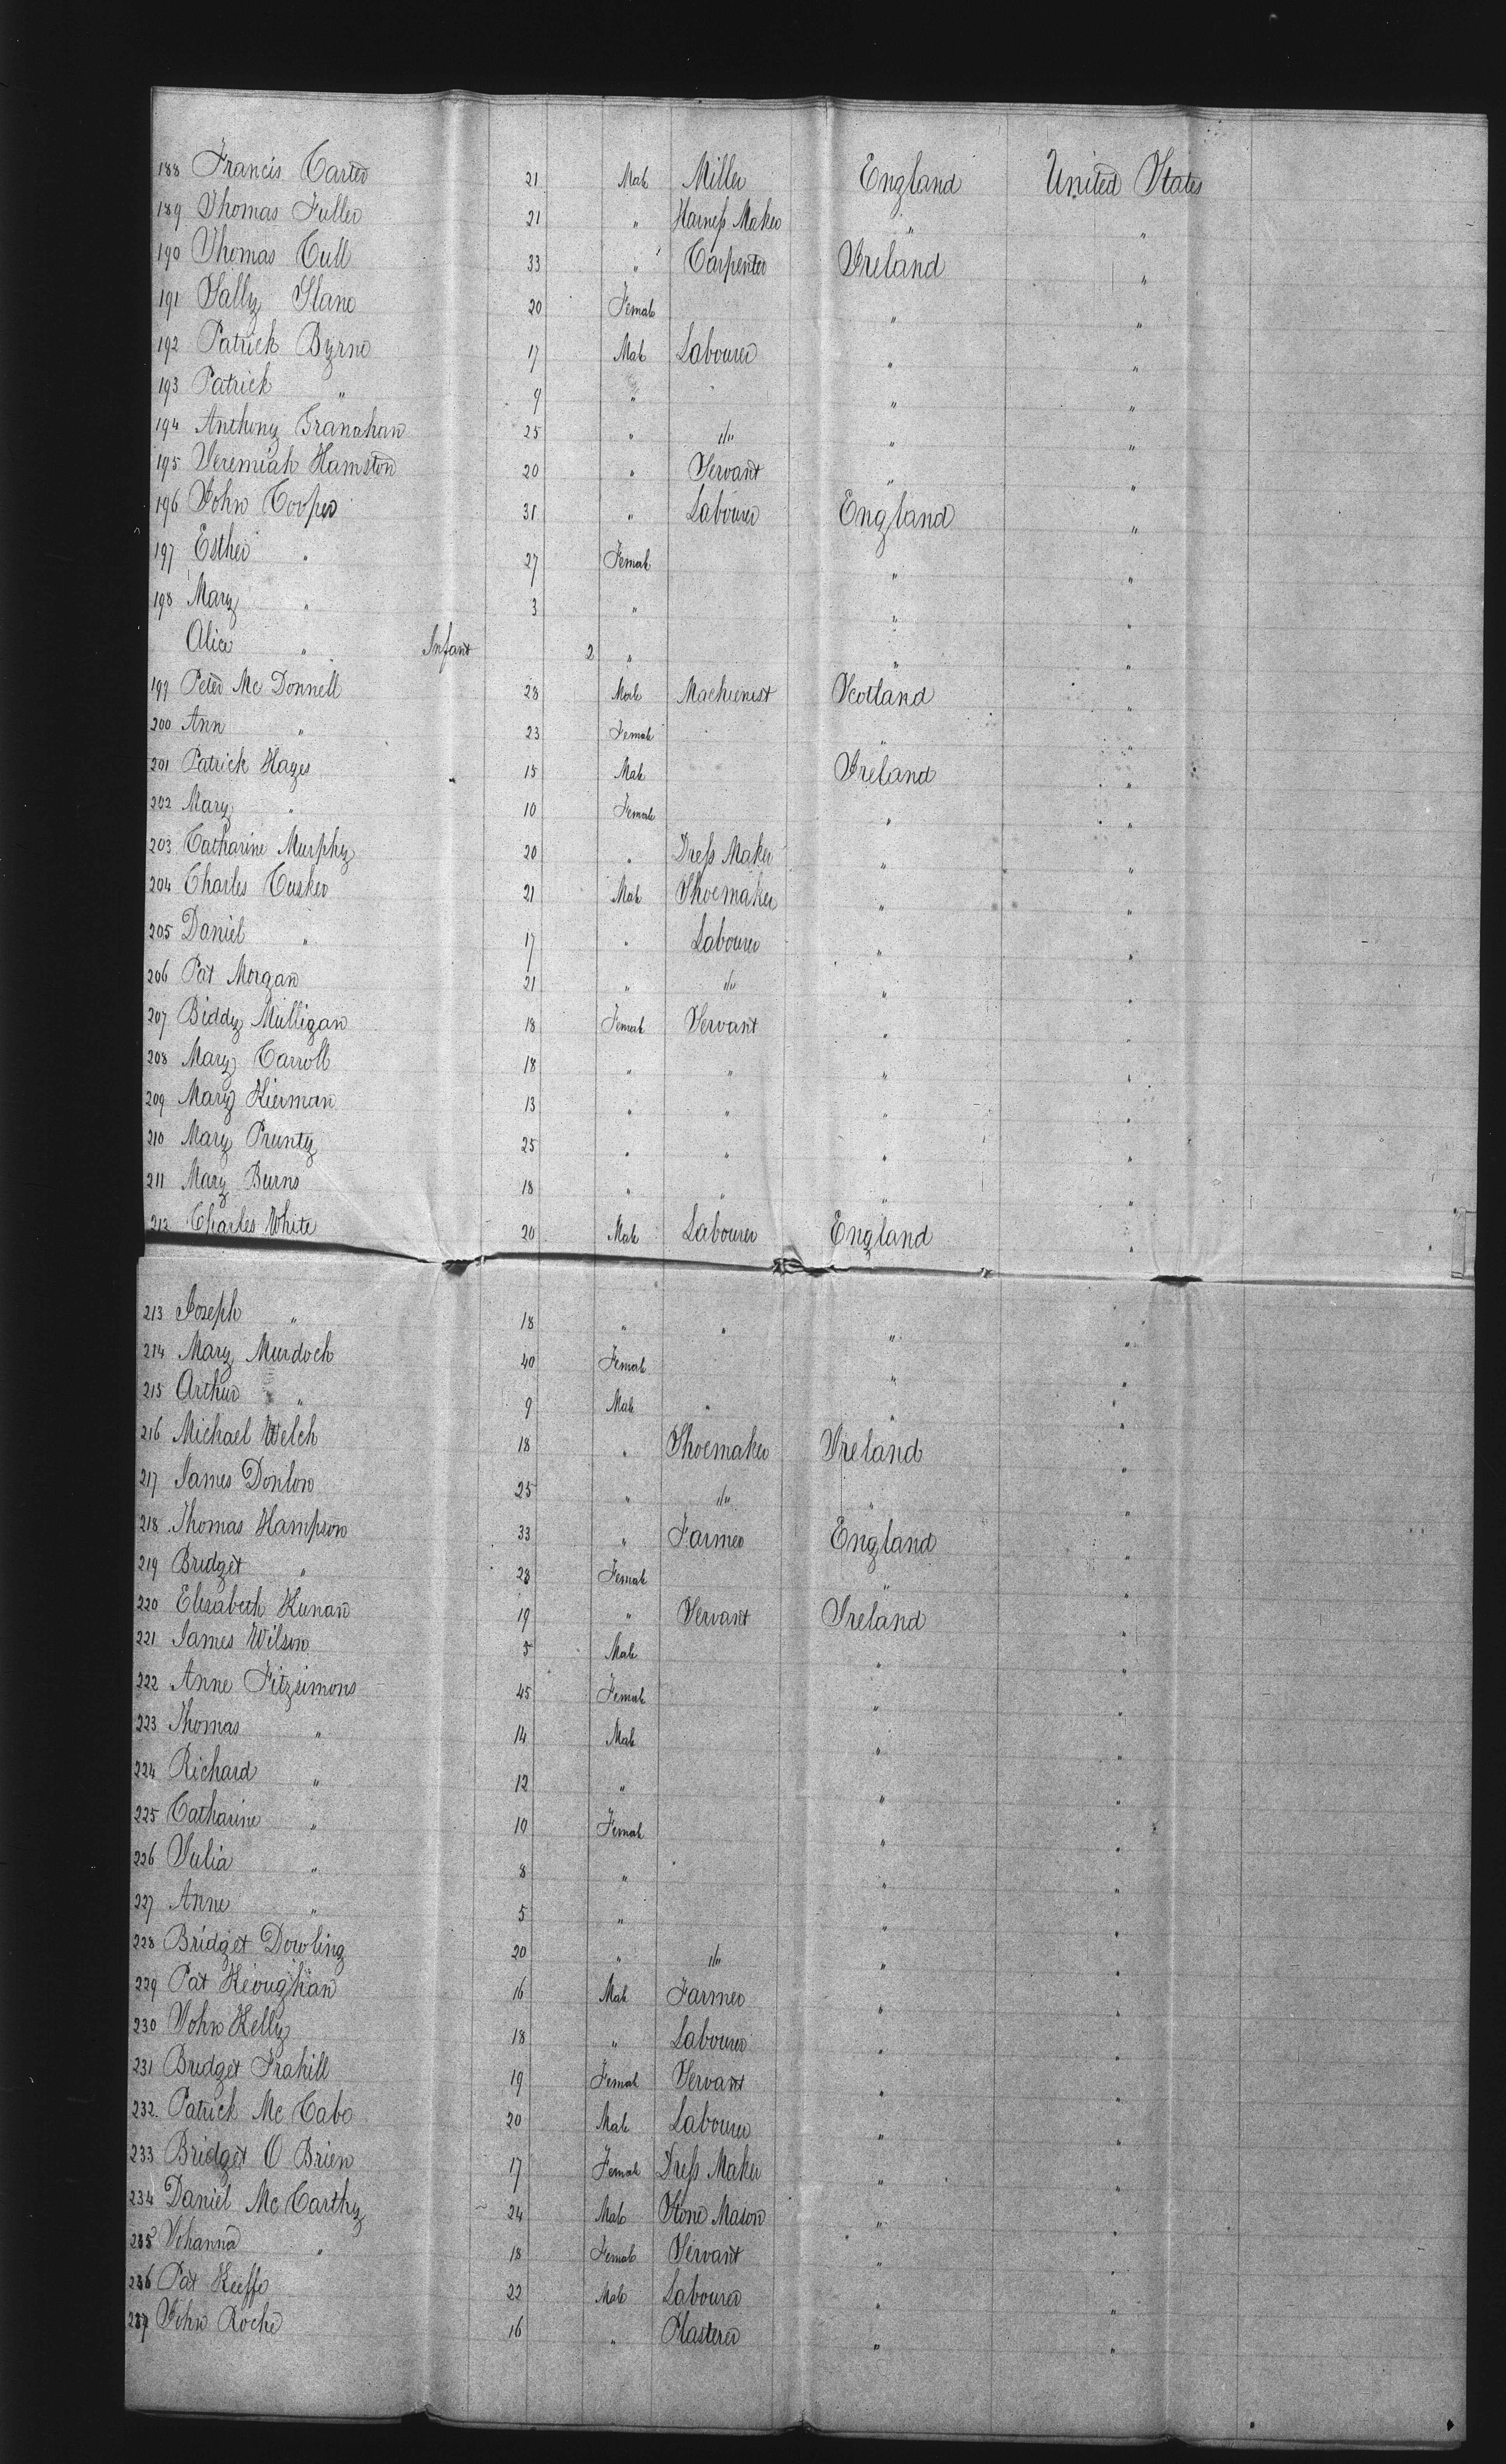 188 Francis Carter 21 Male Miller England United States
189 Thomas Fuller 21 " Harness Maker " "
190 Thomas Cull 33 " Carpenter Ireland "
191 Sally Slane 20 Female " "
192 Patrick Byrne 17 Male Labourer " "
193 Patrick " 9 " " "
194 Anthony Granahan 25 " "/" " "
195 Jeremiah Hamston 20 " Servant " "
196 John Cooper 31 " Labourer England "
197 Esther " 27 Female " "
198 Mary " 3 " " "
Alice " Infant 2 " " "
199 Peter Mc Donnell 28 Male Machienist Scotland "
200 Ann " 23 Female " "
201 Patrick Hayes 15 Male Ireland "
202 Mary " 10 Female " "
203 Catharine Murphy 20 " Dress Maker " "
204 Charles Cusker 21 Male Shoemaker " "
205 Daniel " 17 " Labourer " "
206 Pat Morgan 21 " "/" " "
207 Biddy Mulligan 18 Female Servant " "
208 Mary Carroll 18 " " " "
209 Mary Kierman 13 " " " "
210 Mary Prunty 25 " " " "
211 Mary Burns 18 " " " "
212 Charles White 20 Male Labourer England "
213 Joseph " 18 " " " "
214 Mary Murdoch 40 Female " "
215 Arthur " 9 Male " " "
216 Michael Welch 18 " Shoemaker Ireland "
217 James Donlon 25 " "/" " "
218 Thomas Hampson 33 " Farmer England "
219 Bridget " 28 Female " "
220 Elisabeth Kunan 19 " Servant Ireland "
221 James Wilson 5 Male " "
222 Anne Fitzsimons 45 Female " "
223 Thomas " 14 Male " "
224 Richard " 12 " " "
225 Catharine " 10 Female " "
226 Julia " 8 " " "
227 Anne " 5 " " "
228 Bridget Dowling 20 " "/" " "
229 Pat Keoughan 16 Male Farmer " "
230 John Kelly 18 " Labourer " "
231 Bridget Frahill 19 Female Servant " "
232. Patrick Mc Cabe 20 Male Labourer " "
233 Bridget O Brien 17 Female Dress Maker " "
234 Daniel Mc Carthy 24 Male Stone Mason " "
235 Johanna " 18 Female Servant " "
236 Pat Keeffe 22 Male Labourer " "
237 John Roche 16 " Plasterer " "